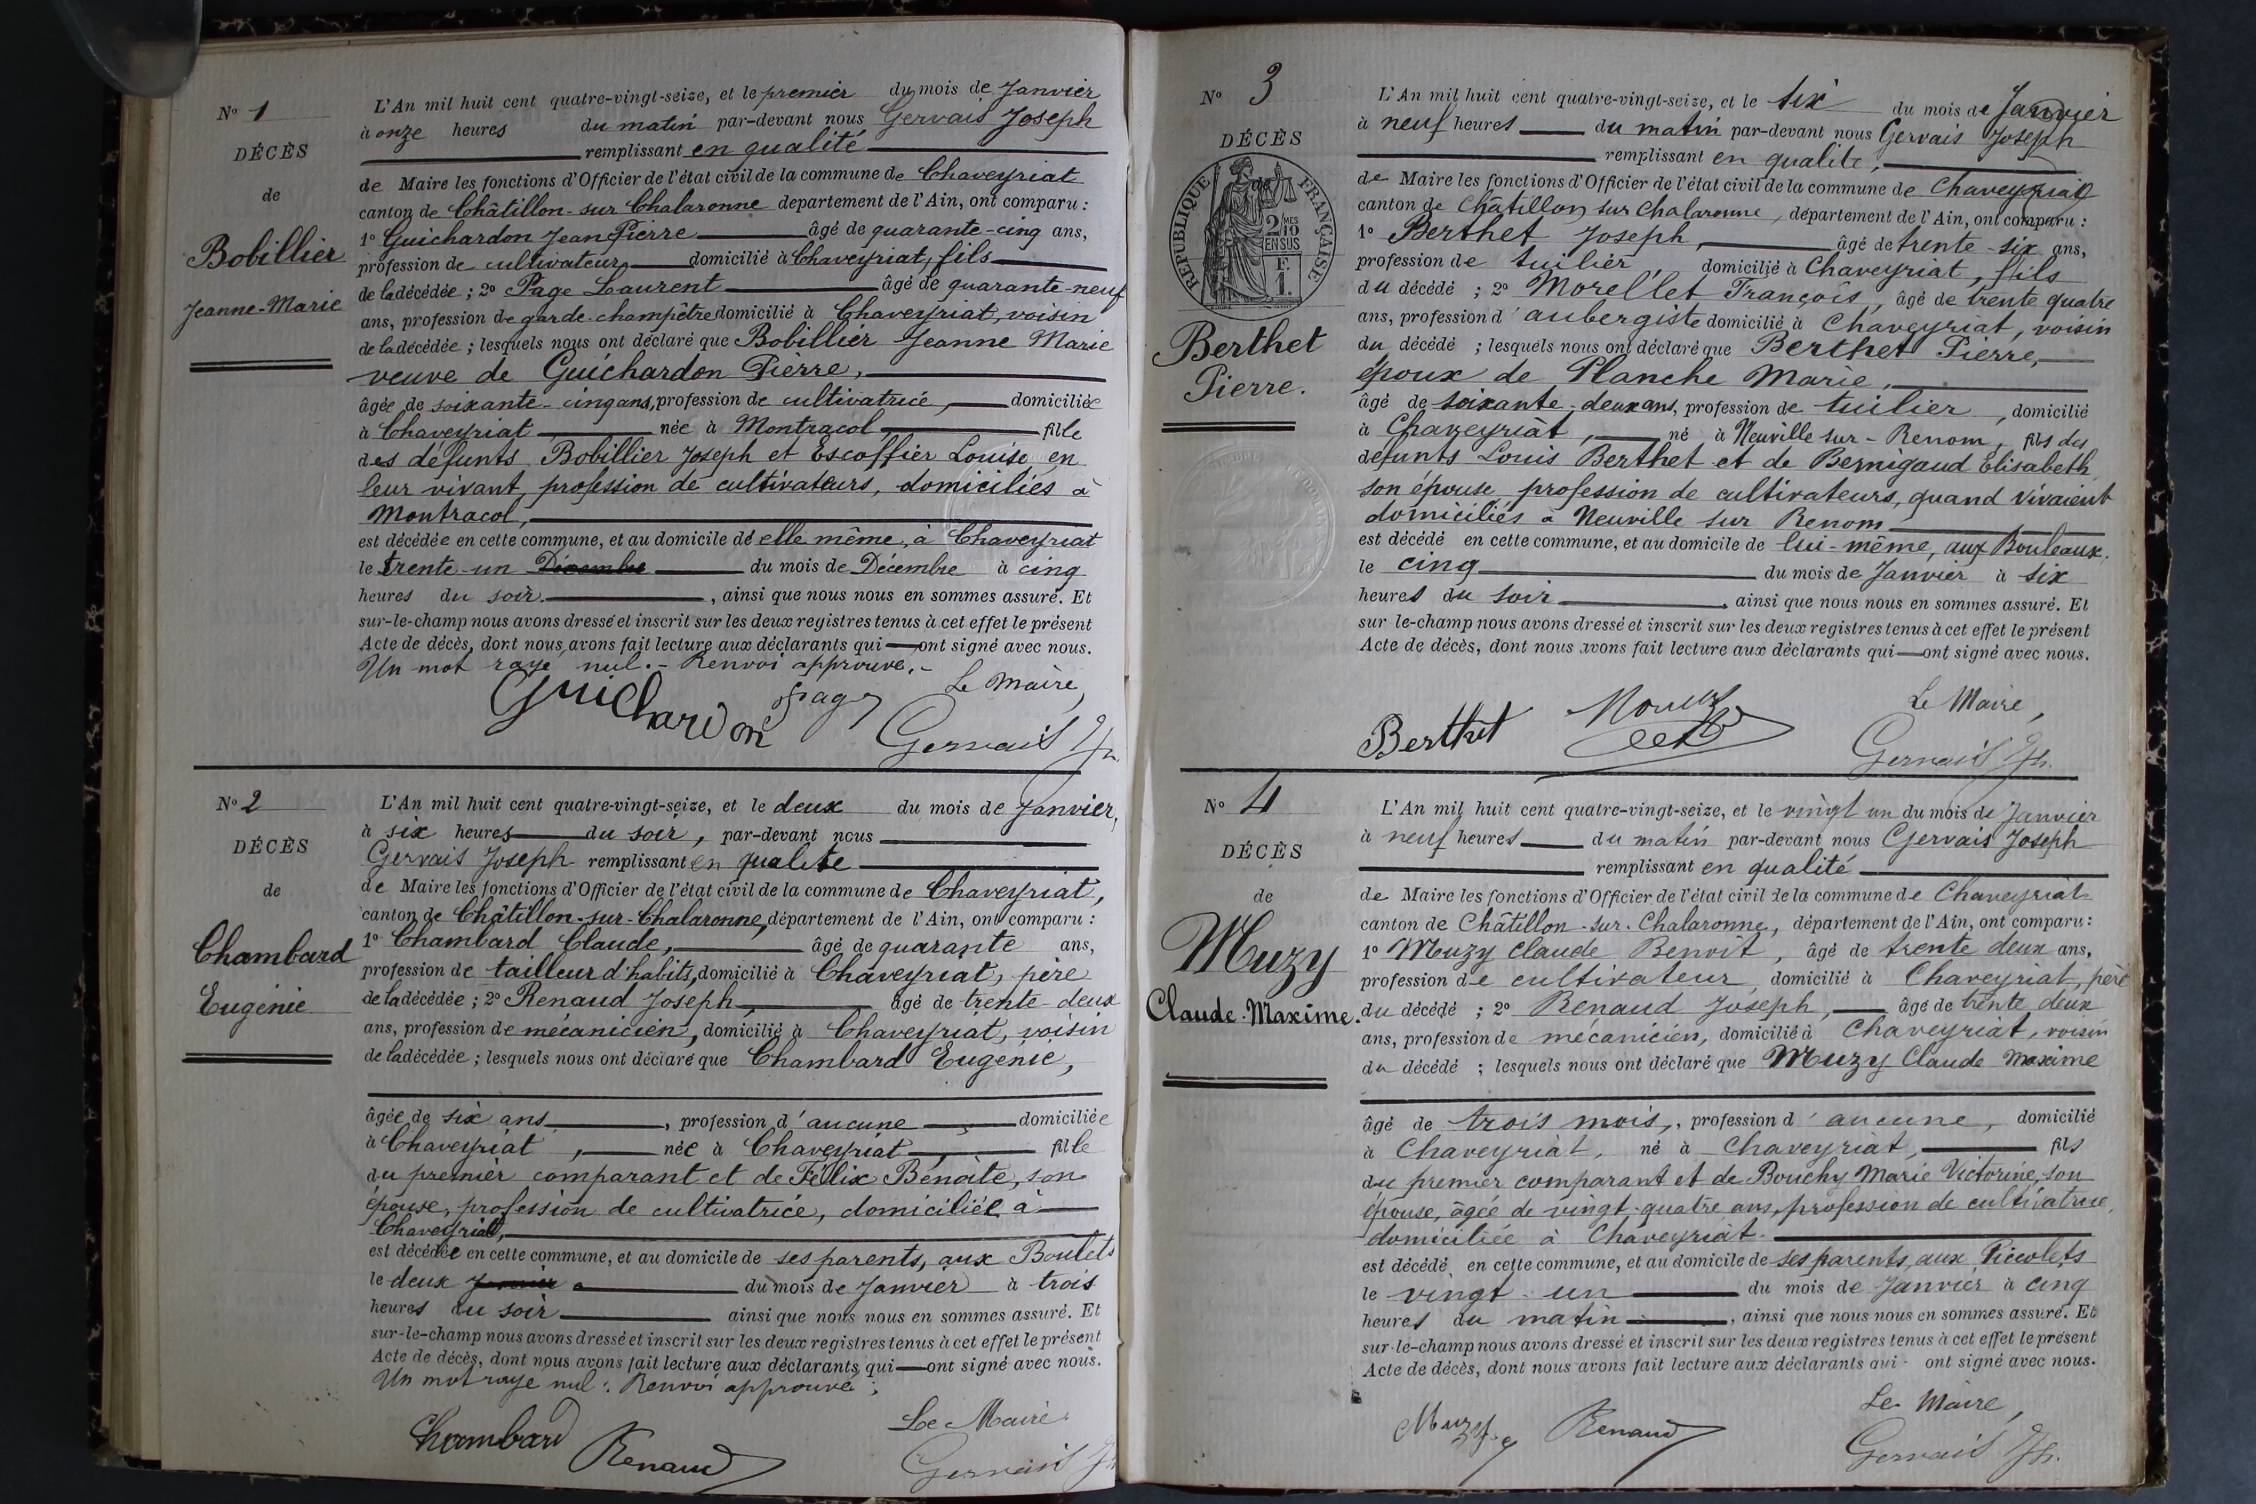 N° 1
DÉCÈS
de
Bobillier
Jeanne-Marie
L'An mil huit cent quatre-vingt-seize, et le premier du mois de Janvier
à onze heures du matin par-devant nous Gervais Joseph
remplissant en qualité
de Maire les fonctions d'Officier de l'état civil de la commune de Chaveyriat
canton de Châtillon-sur-Chalaronne departement de l'Ain, ont comparu :
1° Guichardon Jean Pierre âgé de quarante-cinq ans,
profession de cultivateur domicilié à Chaveyriat, fils
de la décédée ; 2° Page Laurent âgé de quarante-neuf
ans, profession de garde-champêtre domicilié à Chaveyriat, voisin
de la décédée ; lesquels nous ont déclaré que Bobillier Jeanne Marie
veuve de Guichardon Pierre,
âgée de soixante-cinq ans, profession de cultivatrice, domiciliée
à Chaveyriat née à Montracol, fille
des défunts Bobillier Joseph et Escoffier Louise en
leur vivant, profession de cultivateurs, domiciliés à
Montracol,
est décédée en cette commune, et au domicile de elle même, à Chaveyriat
le trente-un Décembre du mois de Décembre à cinq
heures du soir. , ainsi que nous nous en sommes assuré. Et
sur-le-champ nous avons dressé et inscrit sur les deux registres tenus à cet effet le présent
Acte de décès, dont nous avons fait lecture aux déclarants qui ont signé avec nous.
Un mot rayé nul.- Renvoi approuvé.-
Le Maire,
Guichardon Page Gervais Jh
N° 2
DÉCÈS
de
Chambard
Eugénie
L'An mil huit cent quatre-vingt-seize, et le deux du mois de Janvier,
à six heures du soir, par-devant nous
Gervais Joseph remplissant en qualité
de Maire les fonctions d'Officier de l'état civil de la commune de Chaveyriat,
canton de Châtillon-sur-Chalaronne, département de l'Ain, ont comparu :
1° Chambard Claude, âgé de quarante ans,
profession de tailleur d'habits, domicilié à Chaveyriat, père
de la décédée ; 2° Renaud Joseph, âgé de trente-deux
ans, profession de mécanicien, domicilié à Chaveyriat, voisin
de la décédée ; lesquels nous ont déclaré que Chambard Eugénie,
âgée de six ans , profession d'aucune domiciliée
à Chaveyriat , née à Chaveyriat, fille
du premier comparant et de Félix Benoîte, son
épouse, profession de cultivatrice, domiciliée à
Chaveyriat,
est décédée en cette commune, et au domicile de ses parents, aux Boulets
le deux Janvier du mois de Janvier à trois
heures du soir ainsi que nous nous en sommes assuré. Et
sur-le-champ nous avons dressé et inscrit sur les deux registres tenus à cet effet le présent
Acte de décès, dont nous avons fait lecture aux déclarants qui ont signé avec nous.
Un mot raye nul : Renvoi approuvé ;
Le Maire
Chambard Renaud Gervais Jh
N° 3
DÉCÈS
RÉPUBLIQUE FRANÇAISE
2/10 MES
EN SUS
F.
1.
Berthet
Pierre.
L'An mil huit cent quatre-vingt-seize, et le six du mois de Janvier
à neuf heures du matin par-devant nous Gervais Joseph
remplissant en qualité,
de Maire les fonctions d'Officier de l'état civil de la commune de Chaveyriat
canton de Châtillon sur Chalaronne, département de l'Ain, ont comparu :
1° Berthet Joseph, âgé de trente-six ans,
profession de tuilier, domicilié à Chaveyriat, fils
du décédé ; 2° Morellet François, âgé de trente quatre
ans, profession d'aubergiste domicilié à Chaveyriat, voisin
du décédé ; lesquels nous ont déclaré que Berthet Pierre,
époux de Planche Marie,
âgé de soixante-deux ans, profession de tuilier, domicilié
à Chaveyriat, né à Neuville sur-Renom, fils des
défunts Louis Berthet et de Bernigaud Elisabeth
son épouse, profession de cultivateurs, quand vivaient
domiciliés à Neuville sur Renom
est décédé en cette commune, et au domicile de lui-même, aux Bouleaux,
le cinq du mois de Janvier à six
heures du soir , ainsi que nous nous en sommes assuré. Et
sur le-champ nous avons dressé et inscrit sur les deux registres tenus à cet effet le présent
Acte de décès, dont nous avons fait lecture aux déclarants qui ont signé avec nous.
Le Maire,
Berthet Gervais Jh.
N° 4
DÉCÈS
de
Muzy
Claude-Maxime.
L'An mil huit cent quatre-vingt-seize, et le vingt un du mois de Janvier
à neuf heures du matin par-devant nous Gervais Joseph
remplissant en qualité
de Maire les fonctions d'Officier de l'état civil de la commune de Chaveyriat
canton de Châtillon-sur-Chalaronne, département de l'Ain, ont comparu:
1° Muzy Claude Benoit, âgé de trente deux ans,
profession de cultivateur domicilié à Chaveyriat, père
du décédé ; 2° Renaud Joseph, âgé de trente deux
ans, profession de mécanicien, domicilié à Chaveyriat, voisin
du décédé ; lesquels nous ont déclaré que Muzy Claude Maxime
âgé de trois mois, profession d'aucune, domicilié
à Chaveyriat, né à Chaveyriat, fils
du premier comparant et de Bouchy Marie Victorine, son
épouse, âgée de vingt-quatre ans, profession de cultivatrice,
domiciliée à Chaveyriat.
est décédé en cette commune, et au domicile de ses parents, aux Piccolets
le vingt-un du mois de Janvier à cinq
heures du matin , ainsi que nous nous en sommes assuré. Et
sur-le-champ nous avons dressé et inscrit sur les deux registres tenus à cet effet le présent
Acte de décès, dont nous avons fait lecture aux déclarants qui ont signé avec nous.
Le Maire,
Muzy Renaud Gervais Jh.